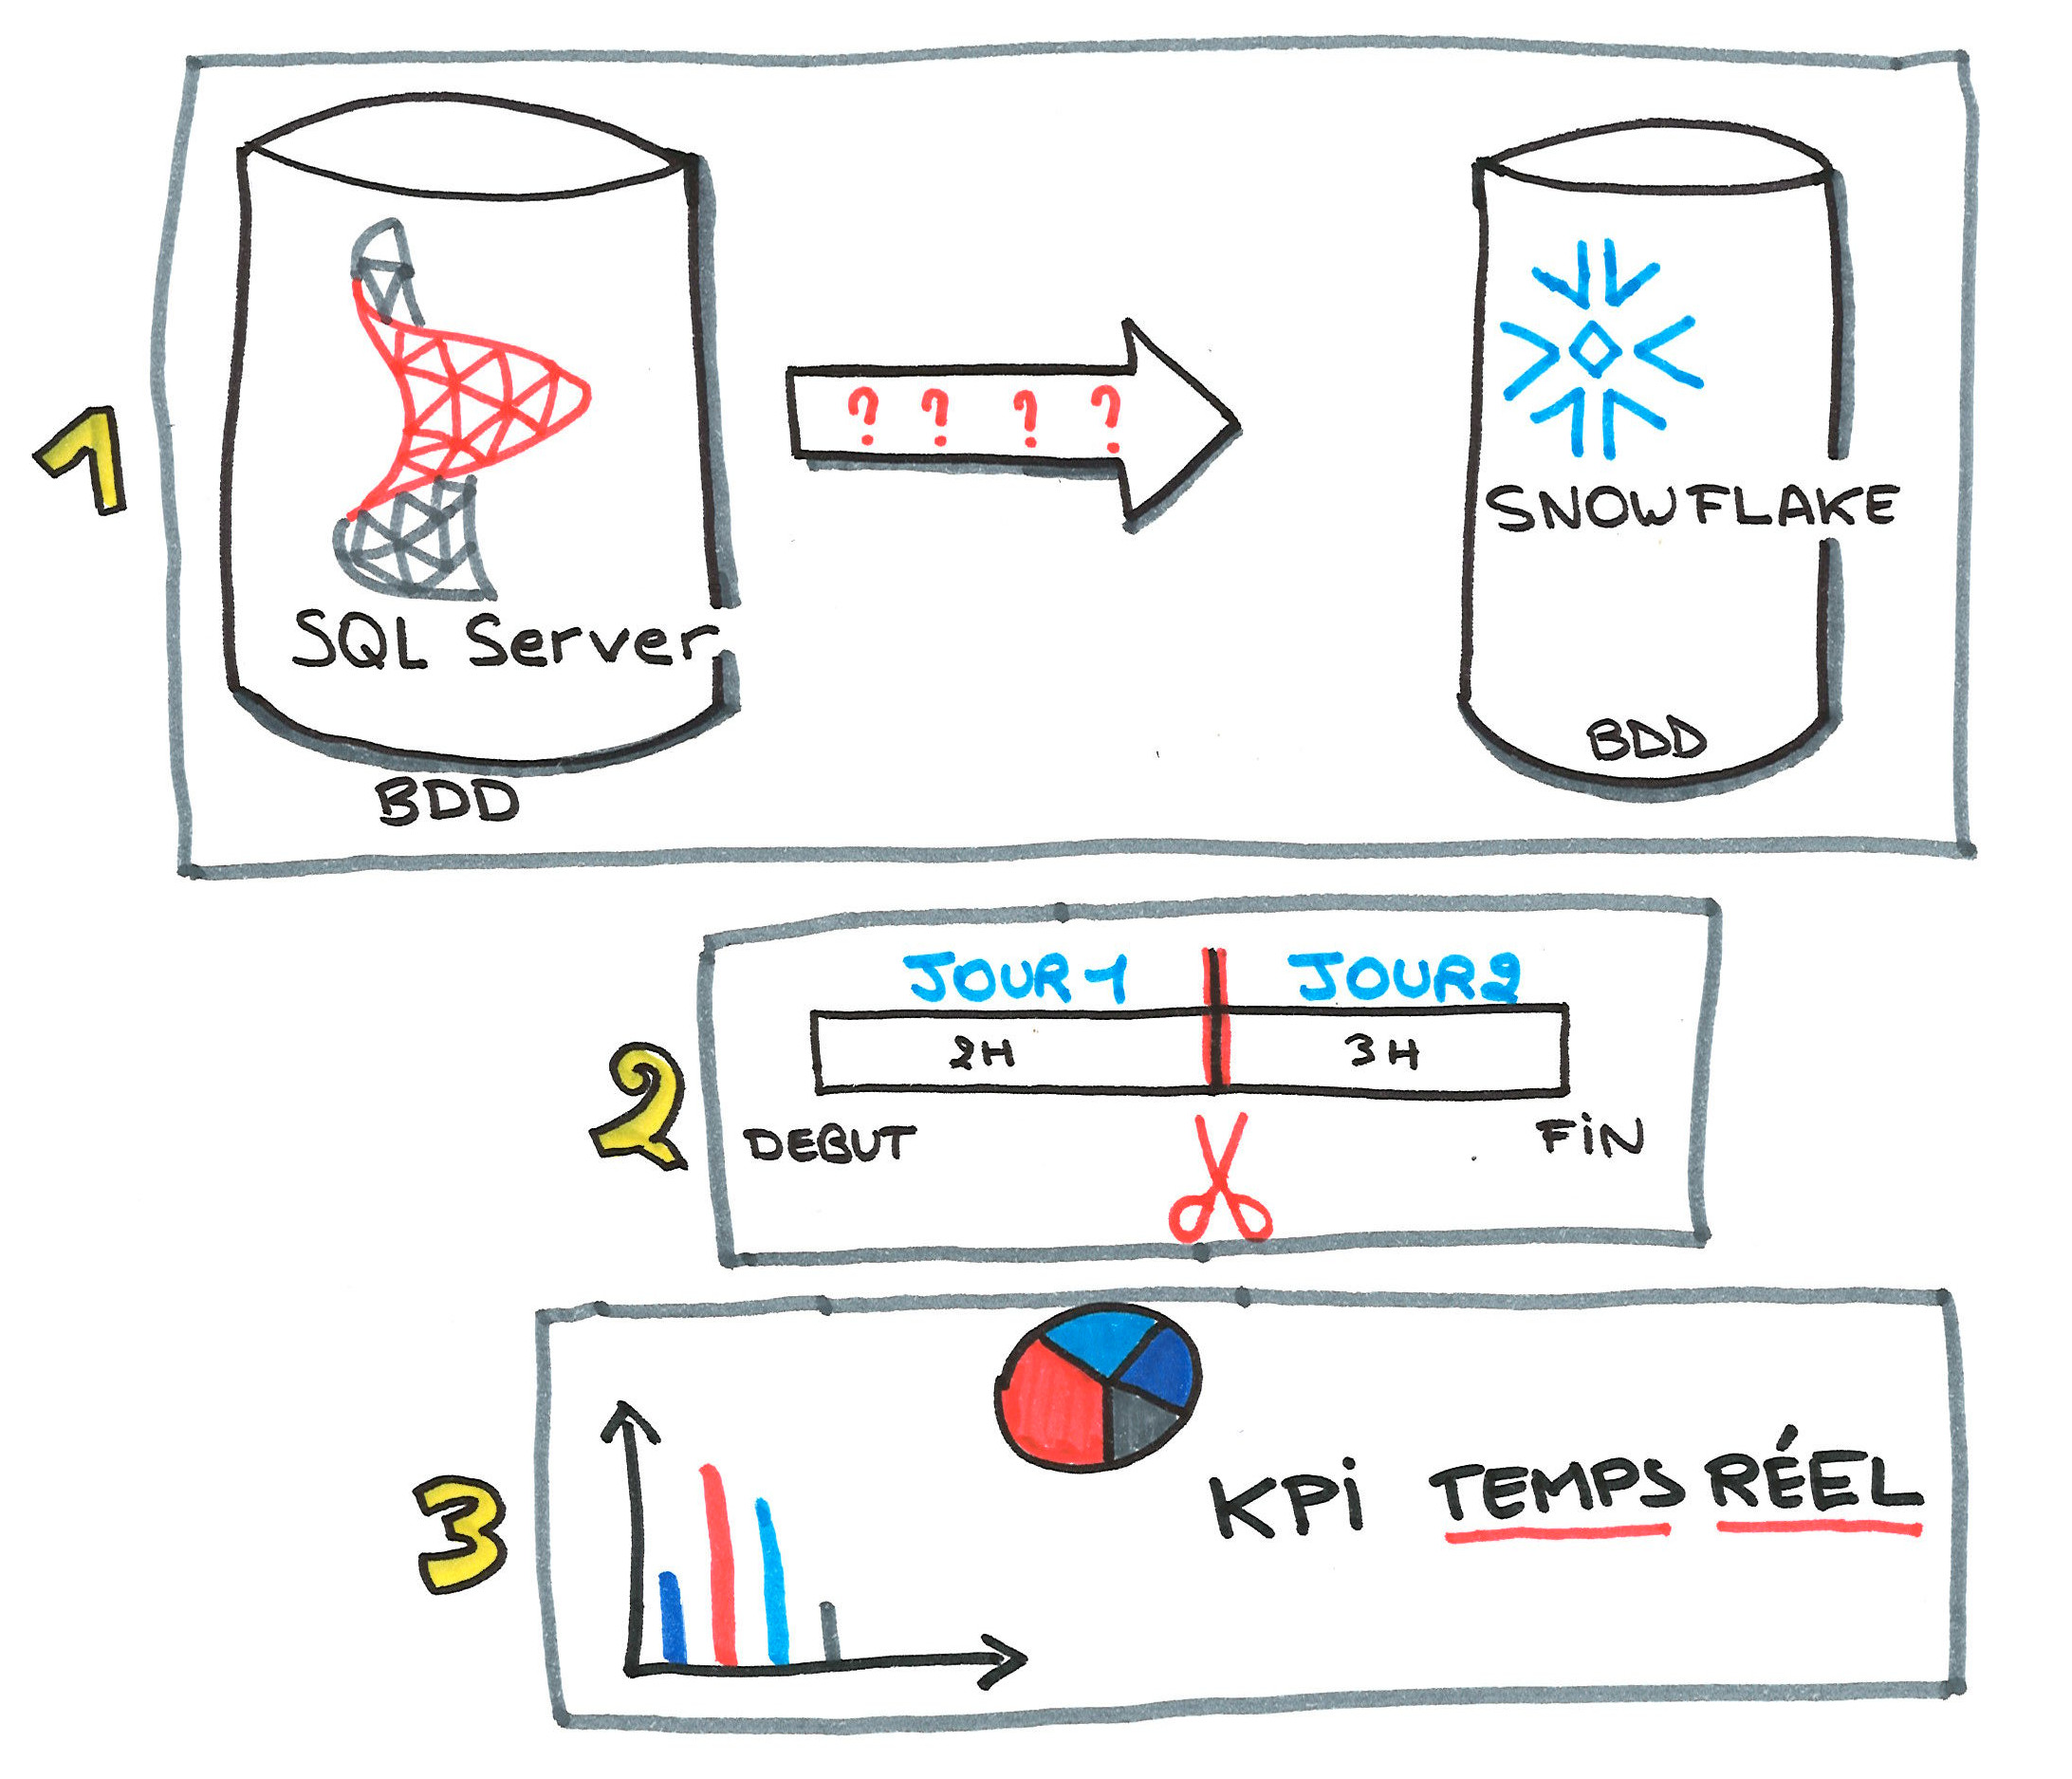 1
? ? ? ?
SQL Server
BDD
SNOWFLAKE
BDD
2
JOUR 1 JOUR 2
2H 3H
DEBUT FiN
3
KPi TEMPS RÉEL